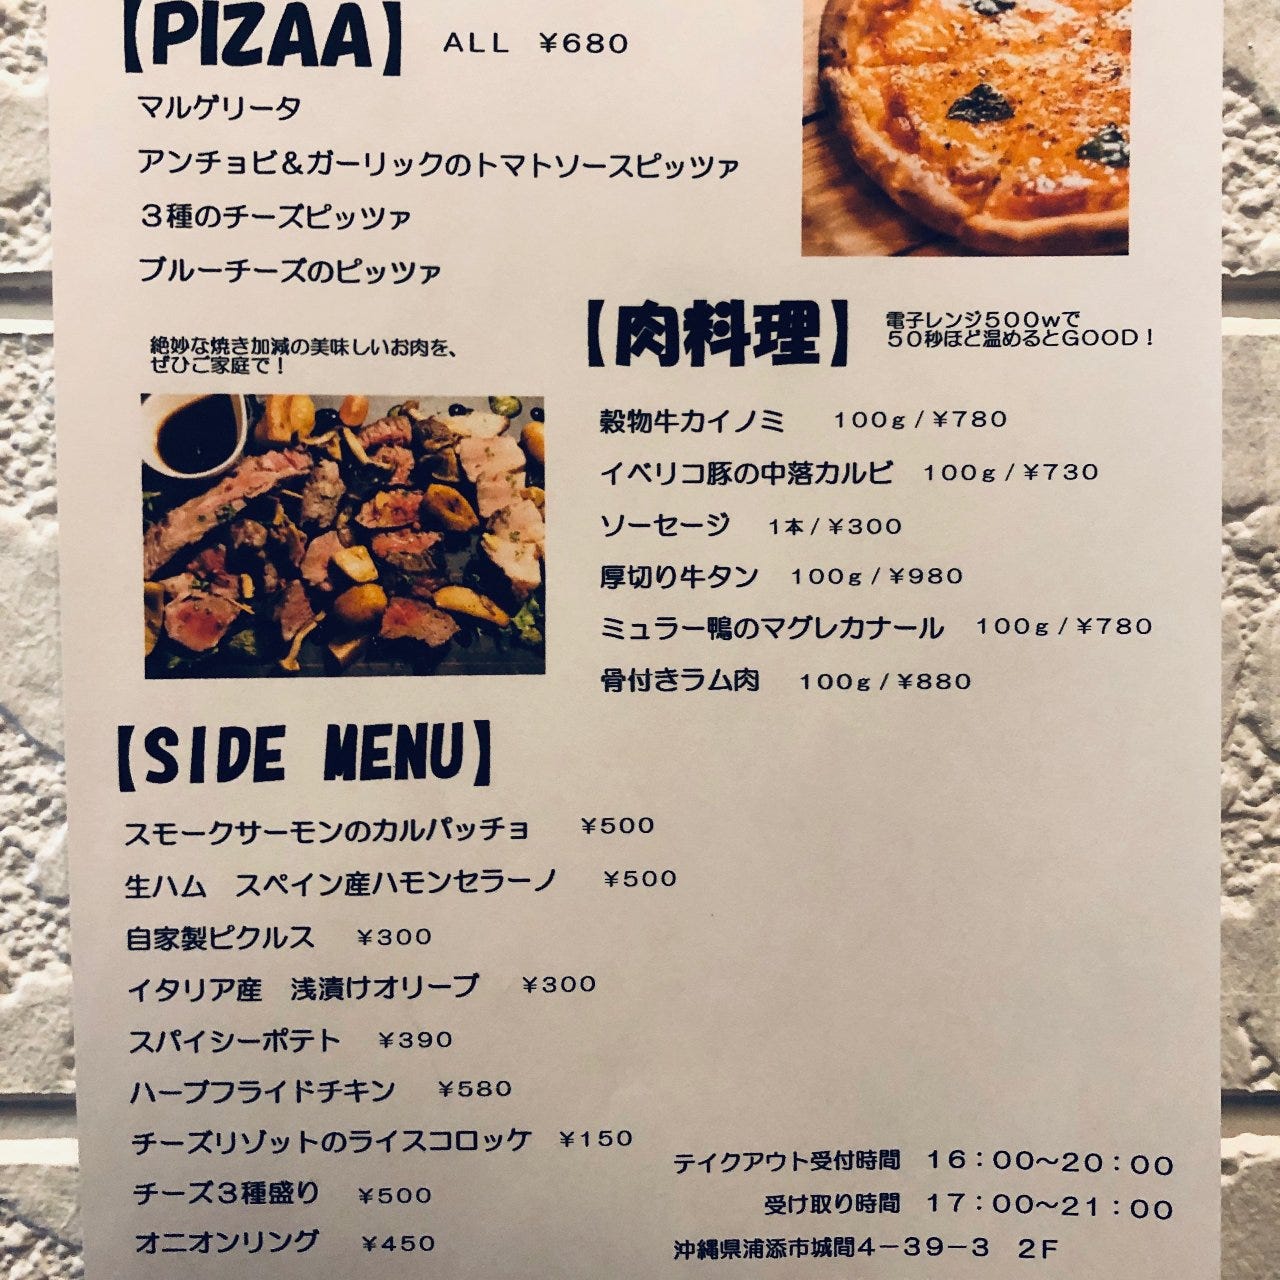 【PIZAA】 ALL ¥680
マルゲリータ
アンチョビ＆ガーリックのトマトソースピッツァ
３種のチーズピッツァ
ブルーチーズのピッツァ
絶妙な焼き加減の美味しいお肉を、
ぜひご家庭で！
【肉料理】
電子レンジ５００ｗで
５０秒ほど温めるとGOOD！
穀物牛カイノミ 100g/¥780
イベリコ豚の中落カルビ 100g/¥730
ソーセージ 1本/¥300
厚切り牛タン 100g/¥980
ミュラー鴨のマグレカナール 100g/¥780
骨付きラム肉 100g/¥880
【SIDE MENU】
スモークサーモンのカルパッチョ ¥500
生ハム スペイン産ハモンセラーノ ¥500
自家製ピクルス ¥300
イタリア産 浅漬けオリーブ ¥300
スパイシーポテト ¥390
ハーブフライドチキン ¥580
チーズリゾットのライスコロッケ ¥150
チーズ３種盛り ¥500
オニオンリング ¥450
テイクアウト受付時間 16：00～20：00
受け取り時間 17：00～21：00
沖縄県浦添市城間4－39－3 2F